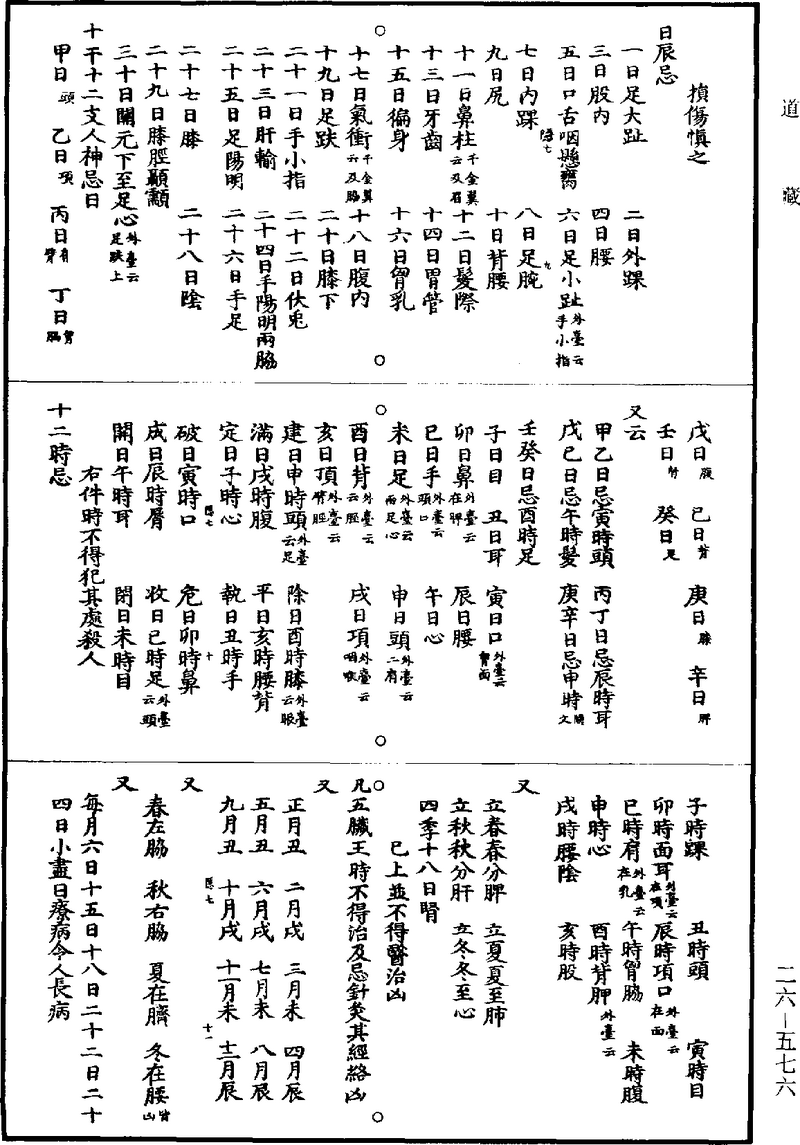 道藏
損傷慎之
日辰忌
一日足大趾　二日外踝
三日股內　四日腰
五日口舌咽懸癰　六日足小趾外臺云手小指
七日內踝　八日足腕
九日尻　十日背腰
十一日鼻柱千金翼云及眉　十二日髮際
十三日牙齒　十四日胃管
十五日徧身　十六日胷乳
十七日氣衝千金翼云及脇　十八日腹內
十九日足趺　二十日膝下
二十一日手小指　二十二日伏兎
二十三日肝輸　二十四日手陽明兩脇
二十五日足陽明　二十六日手足
二十七日膝　二十八日陰
二十九日膝脛顳顬
三十日關元下至足心外臺云足趺上
十干十二支人神忌日
甲日頭　乙日項　丙日肩臂　丁日胷脇
戊日腹　己日背　庚日膝　辛日脾
壬日腎　癸日足
又云
甲乙日忌寅時頭　丙丁日忌辰時耳
戊己日忌午時髮　庚辛日忌申時
壬癸日忌酉時足
子日目　丑日耳　寅日口外臺云胷面
卯日鼻外臺云在脾　辰日腰
巳日手外臺云頭口　午日心
未日足外臺云兩足心　申日頭外臺云二肩
酉日背外臺云脛　戌日項外臺云咽喉
亥日頂外臺云臂脛
建日申時頭外臺云足　除日酉時膝外臺云眼
滿日戌時腹　平日亥時腰背
定日子時心　執日丑時手
破日寅時口　危日卯時鼻
成日辰時脣　收日巳時足外臺云頭
開日午時耳　閉日未時目
右件時不得犯其處殺人
十二時忌
子時踝　丑時頭　寅時目
卯時面耳外臺云在項　辰時項口外臺云在面
巳時肩外臺云在乳　午時胷脇　未時腹
申時心　酉時背脾外臺云
戌時腰陰　亥時股
又
立春春分脾　立夏夏至肺
立秋秋分肝　立冬冬至心
四季十八日腎
已上並不得醫治凶
凡五臟王時不得治及忌針灸其經絡凶
又
正月丑　二月戌　三月未　四月辰
五月丑　六月戌　七月未　八月辰
九月丑　十月戌　十一月未　十二月辰
又
春左脇　秋右脇　夏在臍　冬在腰皆凶
又
每月六日十五日十八日二十二日二十
四日小盡日療病令人長病
二六—五七六